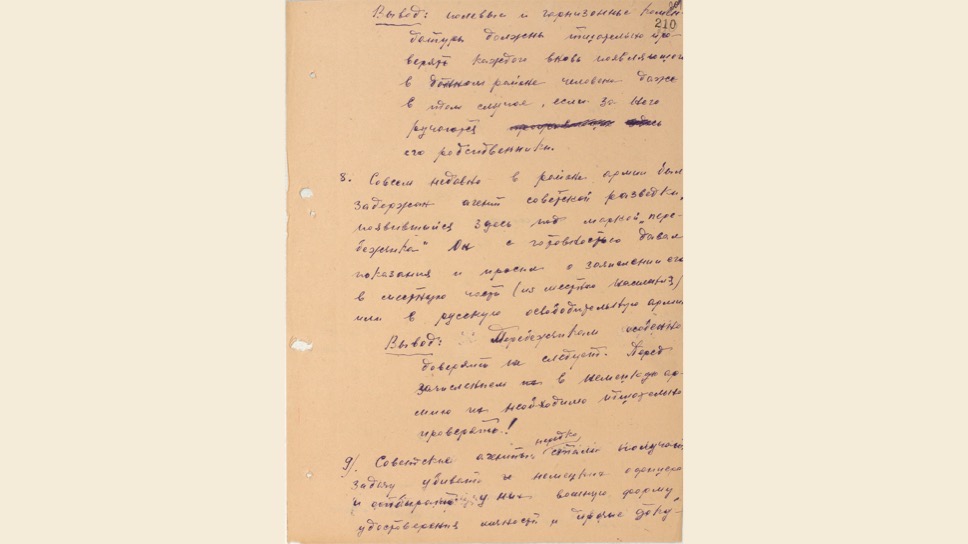 210
Вывод: полевые и гарнизонные комен-
датуры должны тщательно про-
верять каждого вновь появляющегося
в данном районе человека даже
в том случае, если за него
ручаются
его родственники.
8. Совсем недавно в районе армии был
задержан агент советской разведки,
появившийся здесь под маркой „пере-
бежчика“ Он с готовностью давал
показания и просил о зачислении его
в местную часть (из местного населения)
или в русскую освободительную армию
Вывод: Перебежчикам особенно
доверять не следует. Перед
зачислением в немецкую ар-
мию их необходимо тщательно
проверять!
9). Советские агенты нередко стали получать
задачу убивать немецких
и отбирать у них военную форму,
удостоверения личности и прочие доку-